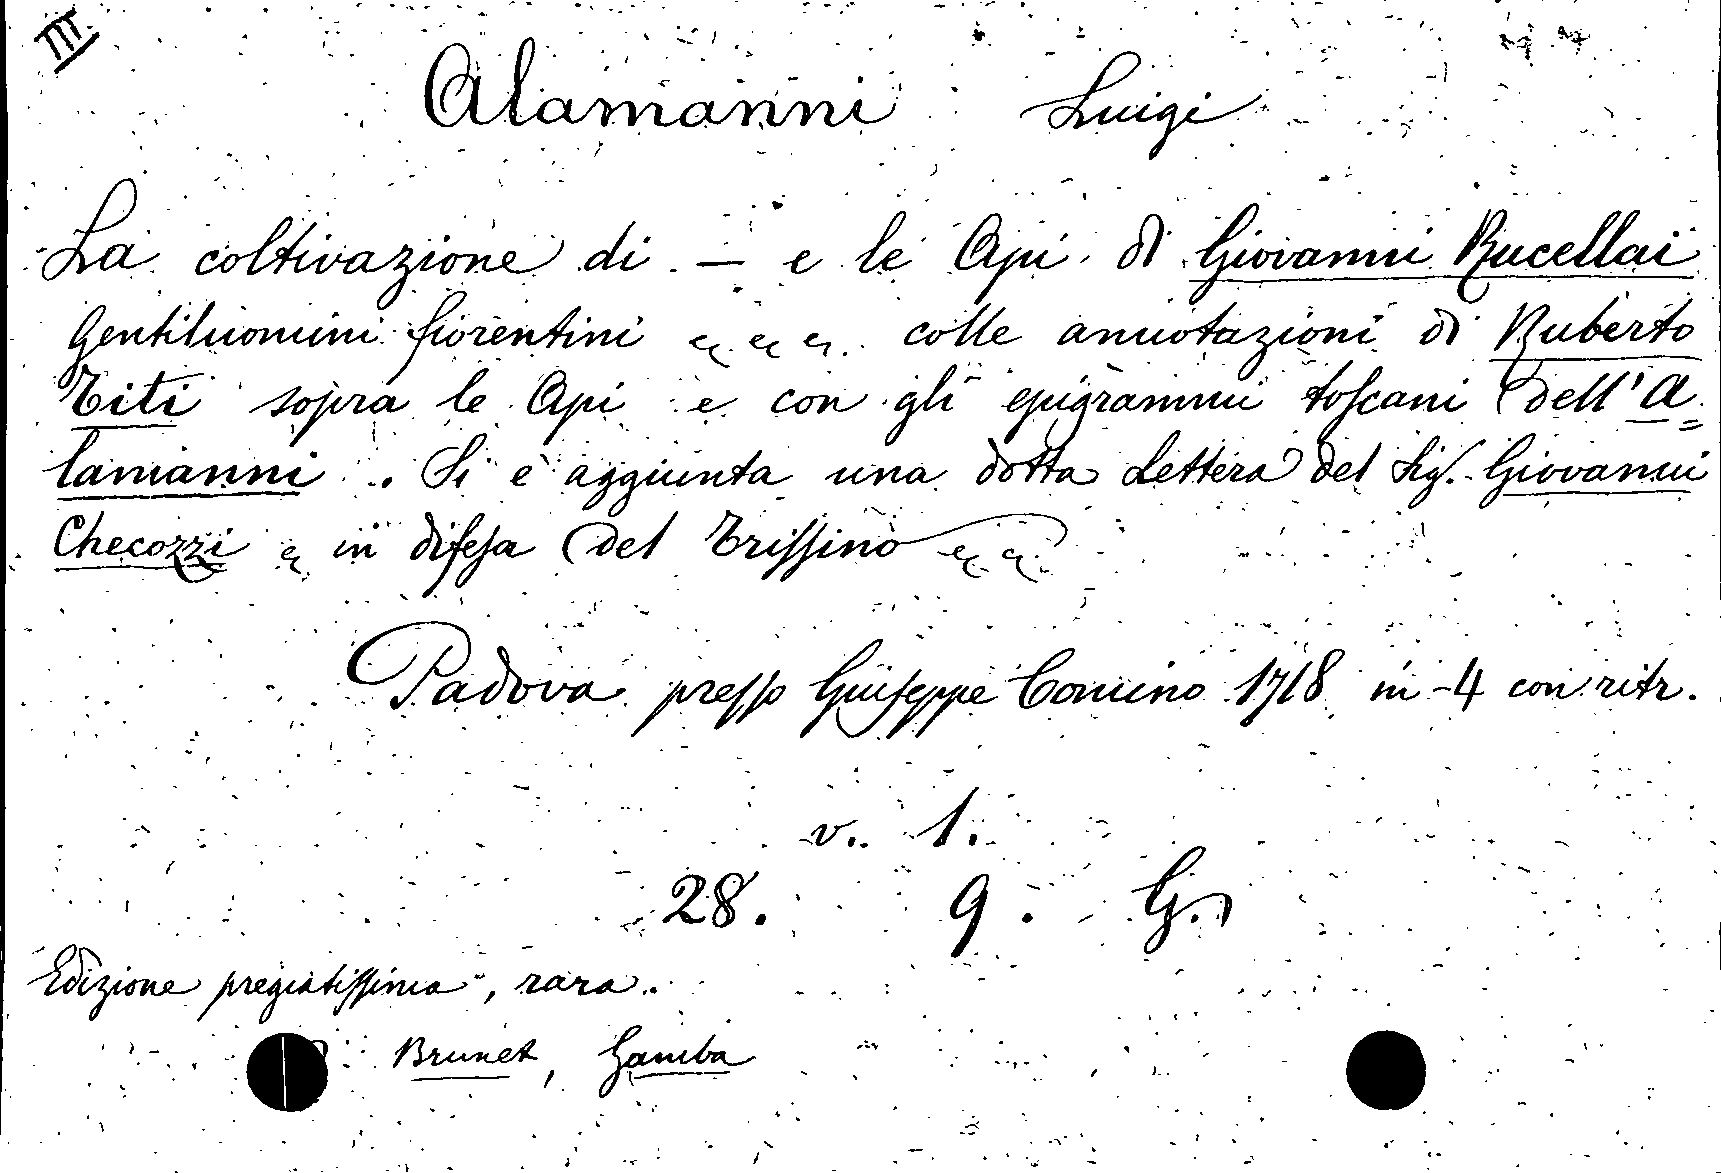 III
Alamanni Luigi
La coltivazione di — e le Api di Giovanni Rucellai
Gentiluomini fiorentini &c &c &c. colle annotazioni di Ruberto
Titi sopra le Api e con gli epigrammi toscani dell'A=
lamanni. Si è aggiunta una dotta Lettera del Sig. Giovanni
Checozzi & in difesa del Trissino &c &c.
Padova presso Giuseppe Comino 1718 in-4 con ritr.
v. 1.
28. 9. G.
Edizione pregiatissima, rara.
Brunet, Gamba